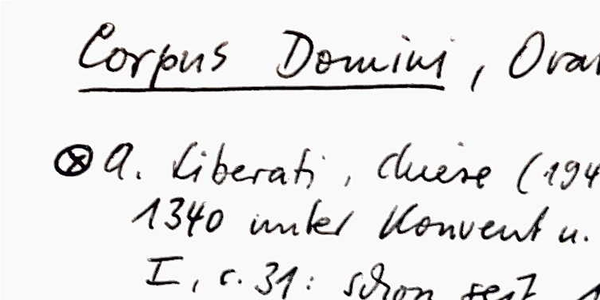 Corpus Domini, Ora
⊗ A. Liberati, chiese (194
1340 unter Konvent u.
I, c. 31: schon seit